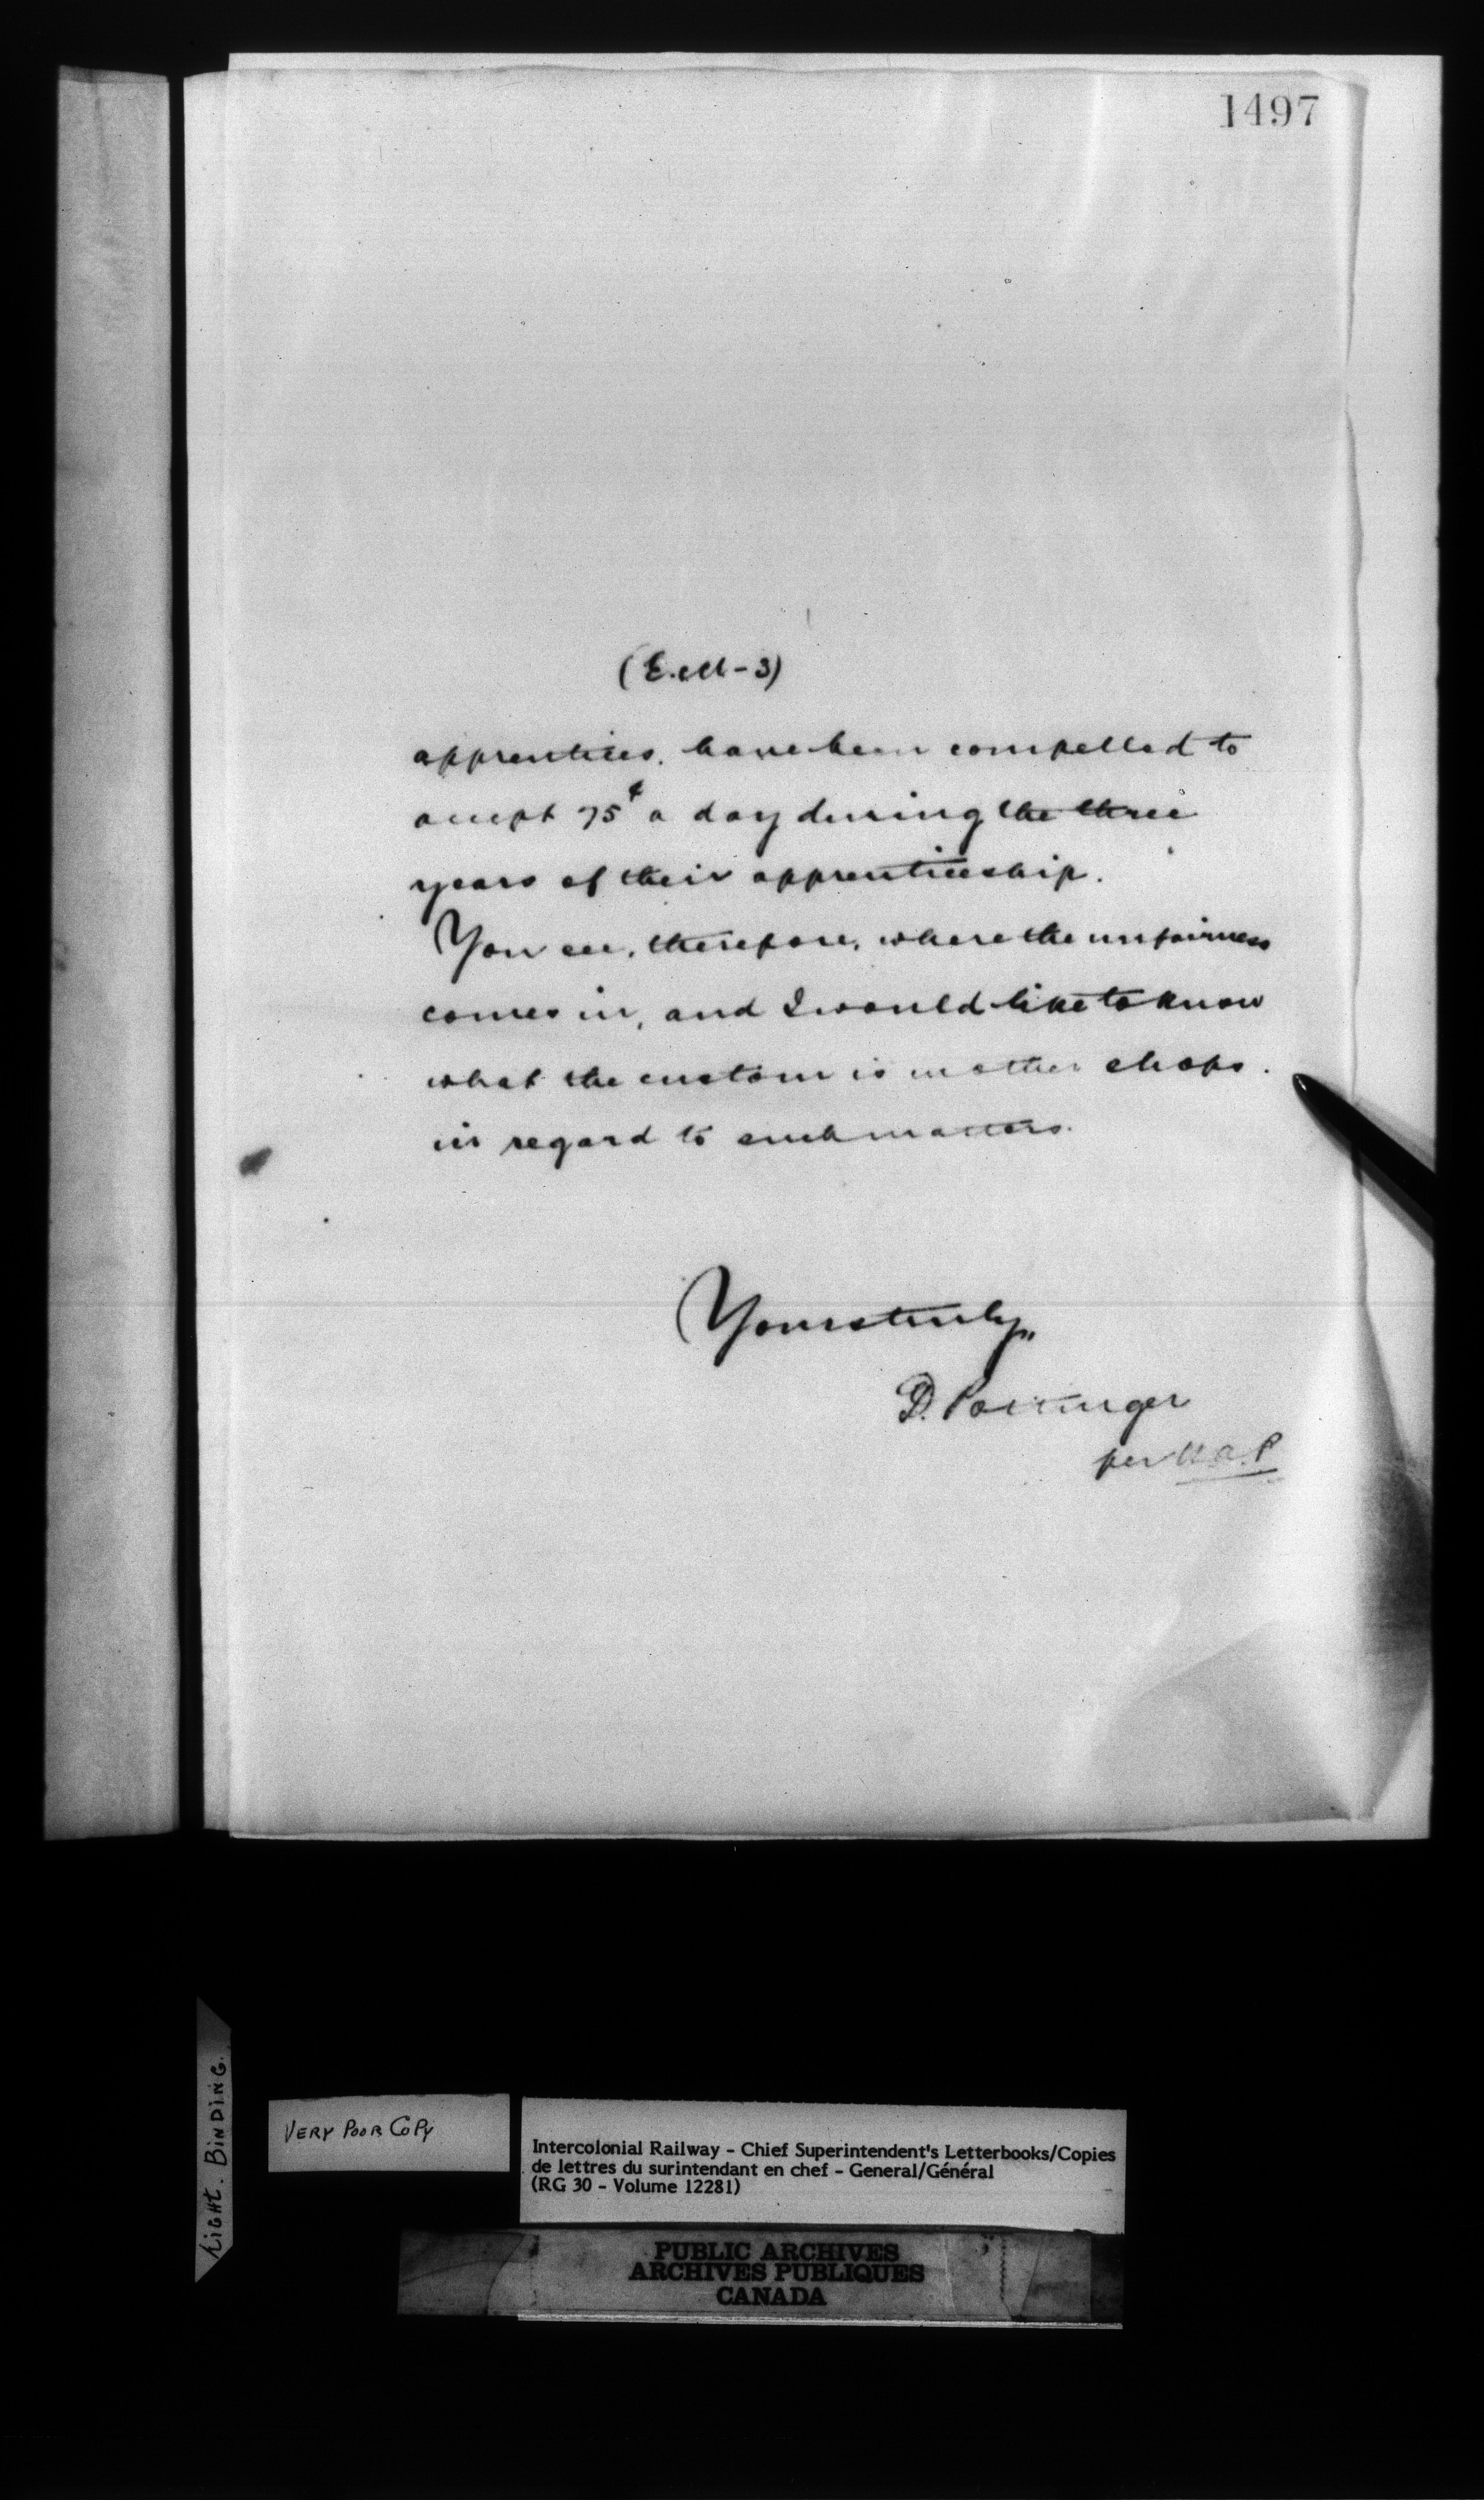 1497
(E.M-3)
apprentices, have been compelled to
accept 75¢ a day during the three
years of their apprenticeship.
You see, therefore, where the unfairness
comes in, and I would like to know
what the custom is in other shops.
in regard to such matters.
Yours truly,
D. Pottinger
per
VERY POOR COPY
TIGHT. BINDING.
Intercolonial Railway - Chief Superintendent's Letterbooks/Copies
de lettres du surintendant en chef - General/Général
(RG 30 - Volume 12281)
PUBLIC ARCHIVES
ARCHIVES PUBLIQUES
CANADA